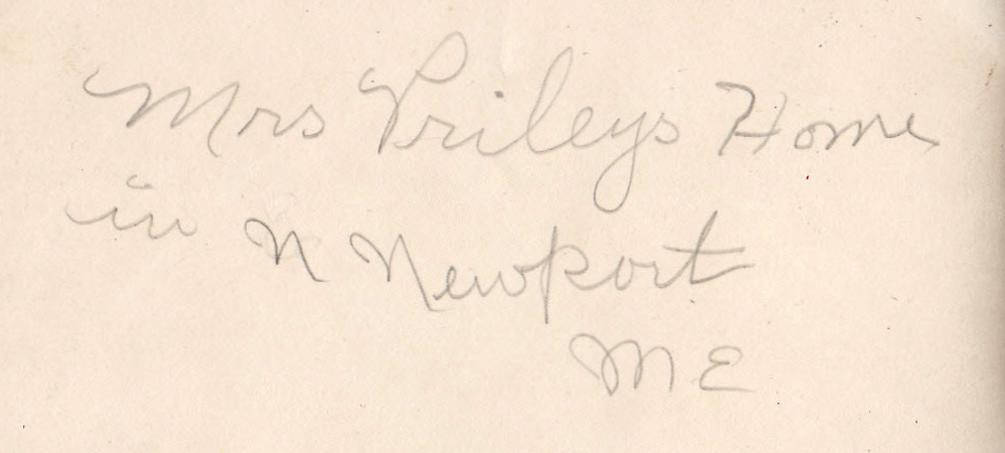 Mrs Prileys Home
in N Newport
ME